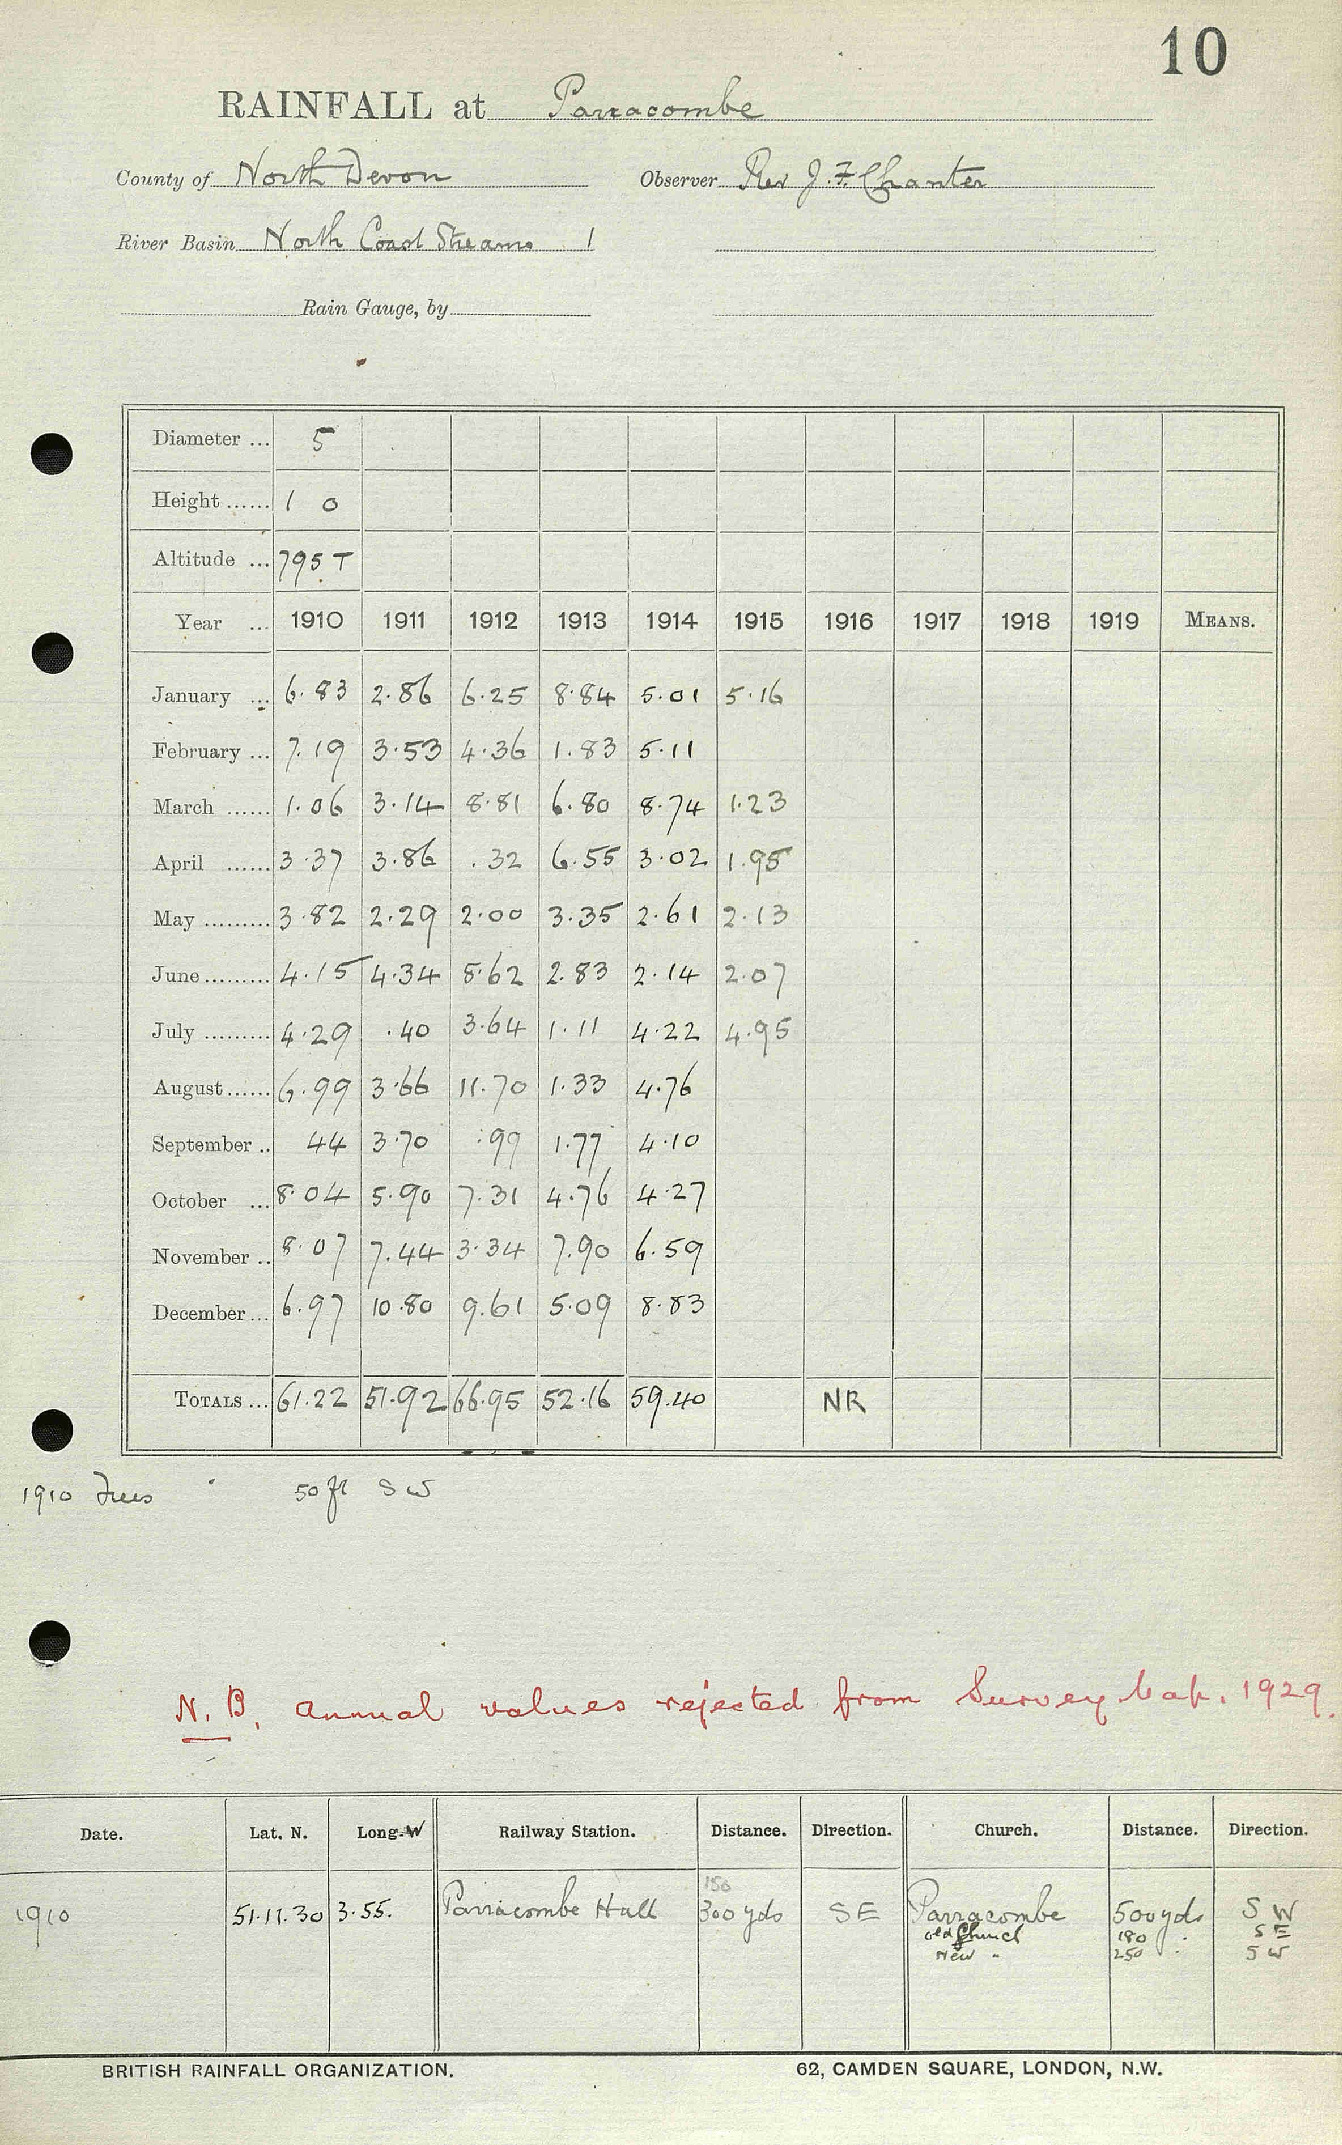 10
RAINFALL at Parracombe
County of North Devon Observer Rev J. F. Chanter
River Basin North Coast Streams 1
Rain Gauge, by
Diameter ... 5
Height ...... 1 0
Altitude ... 795 T
Year ... 1910 1911 1912 1913 1914 1915 1916 1917 1918 1919 MEANS.
January ... 6.83 2.86 6.25 8.84 5.01 5.16
February ... 7.19 3.53 4.36 1.83 5.11
March ...... 1.06 3.14 8.81 6.80 8.74 1.23
April ...... 3.37 3.86 .32 6.55 3.02 1.95
May ......... 3.82 2.29 2.00 3.35 2.61 2.13
June ......... 4.15 4.34 8.62 2.83 2.14 2.07
July ......... 4.29 .40 3.64 1.11 4.22 4.95
August ...... 6.99 3.66 11.70 1.33 4.76
September .. 44 3.70 .99 1.77 4.10
October ... 8.04 5.90 7.31 4.76 4.27
November .. 8.07 7.44 3.34 7.90 6.59
December ... 6.97 10.80 9.61 5.09 8.83
TOTALS ... 61.22 51.92 66.95 52.16 59.40 NR
1910 Trees 50 ft SW
N. B. Annual values rejected from Survey Map. 1929.
Date. Lat. N. Long. W Railway Station. Distance. Direction. Church. Distance. Direction.
150
1910 51.11.30 3.55. Parracombe Halt 300 yds SE Parracombe 500 yds SW
old Church 180 " SE
New " 250 " SW
BRITISH RAINFALL ORGANIZATION. 62, CAMDEN SQUARE, LONDON, N.W.